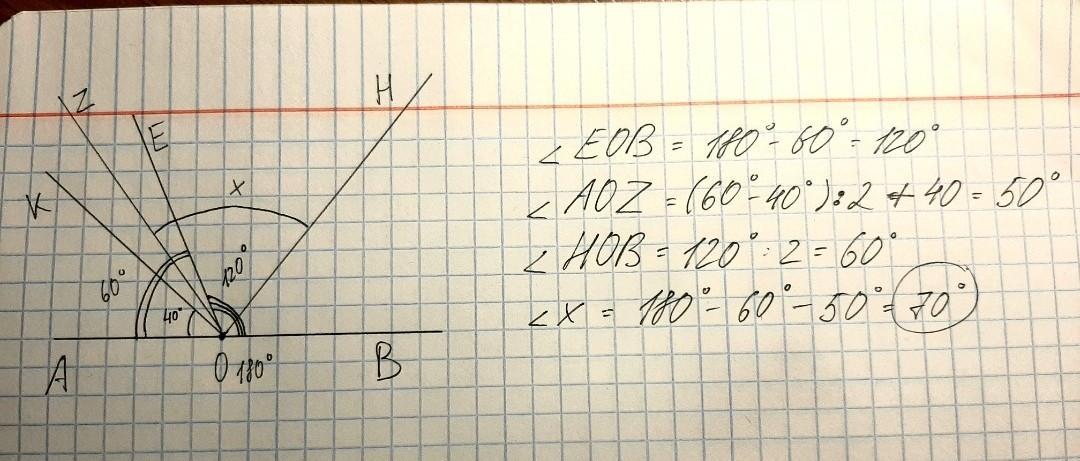 Z
H
E
K
x
60°
120°
40°
A
O 180°
B
∠ EOB = 180° - 60° = 120°
∠ AOZ = (60° - 40°) : 2 + 40 = 50°
∠ HOB = 120° : 2 = 60°
∠ X = 180° - 60° - 50° = 70°